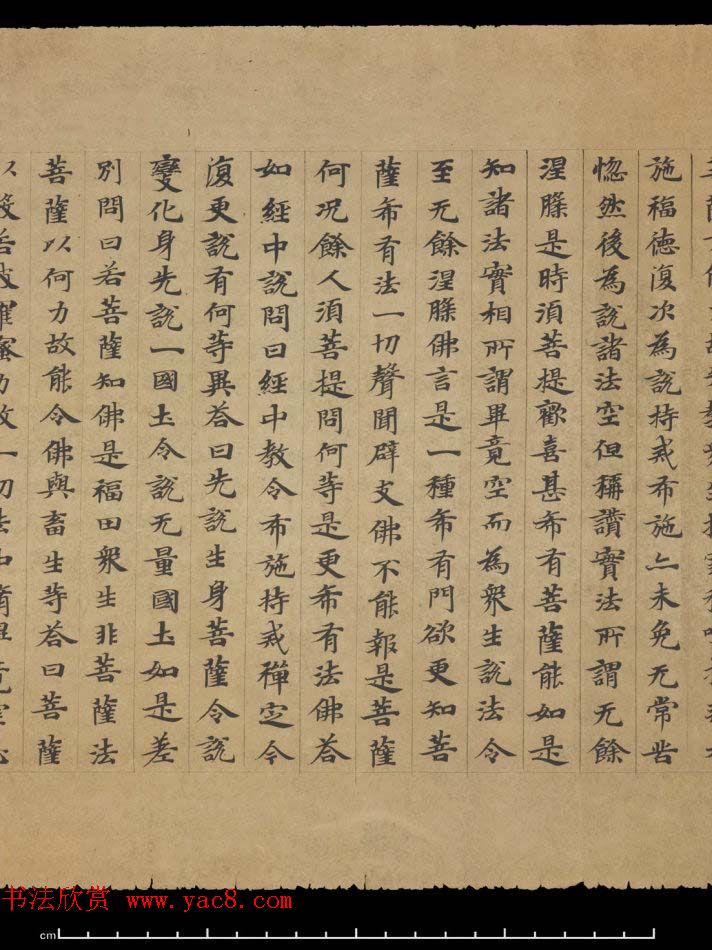 施福德復次為說持戒布施亦未免无常苦
惱然後為說諸法空但稱讚實法所謂无餘
涅槃是時須菩提歡喜甚希有菩薩能如是
知諸法實相所謂畢竟空而為衆生說法令
至无餘涅槃佛言是一種希有門欲更知菩
薩希有法一切聲聞辟支佛不能報是菩薩
何况餘人須菩提問何等是更希有法佛荅
如經中說問曰經中教令布施持戒禪定今
復更說有何等異荅曰先說生身菩薩今說
變化身先說一國土今說无量國土如是差
別問曰若菩薩知佛是福田衆生非菩薩法
菩薩以何力故能令佛與畜生等荅曰菩薩
以般若波羅蜜力故一切法中
书法欣赏 www.yac8.com
cm